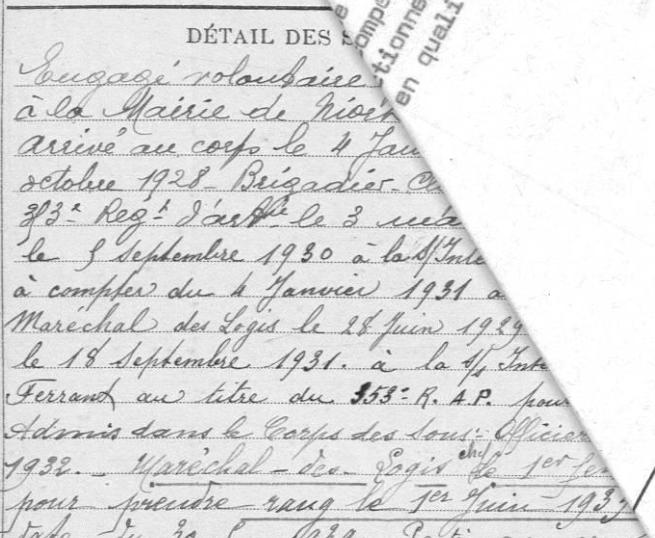 DÉTAIL DES S
Engagé volontaire
à la Mairie de Niort
arrivé au corps le 4 Jan
octobre 1928 - Brigadier-
Regt d'artie le 3 ma
le 5 Septembre 1930 à la s/Inte
à compter du 4 Janvier 1931 a
Maréchal des Logis le 28 Juin 1929
le 18 Septembre 1931. à la s/s Inte
Ferrant au titre du 353e R.A.P. pour
Admis dans le Corps des Sous-Officier
1932. - Maréchal-des-Logis chef le 1er
pour prendre rang le 1er Juin 193
date du
ompé
tionne
en quali